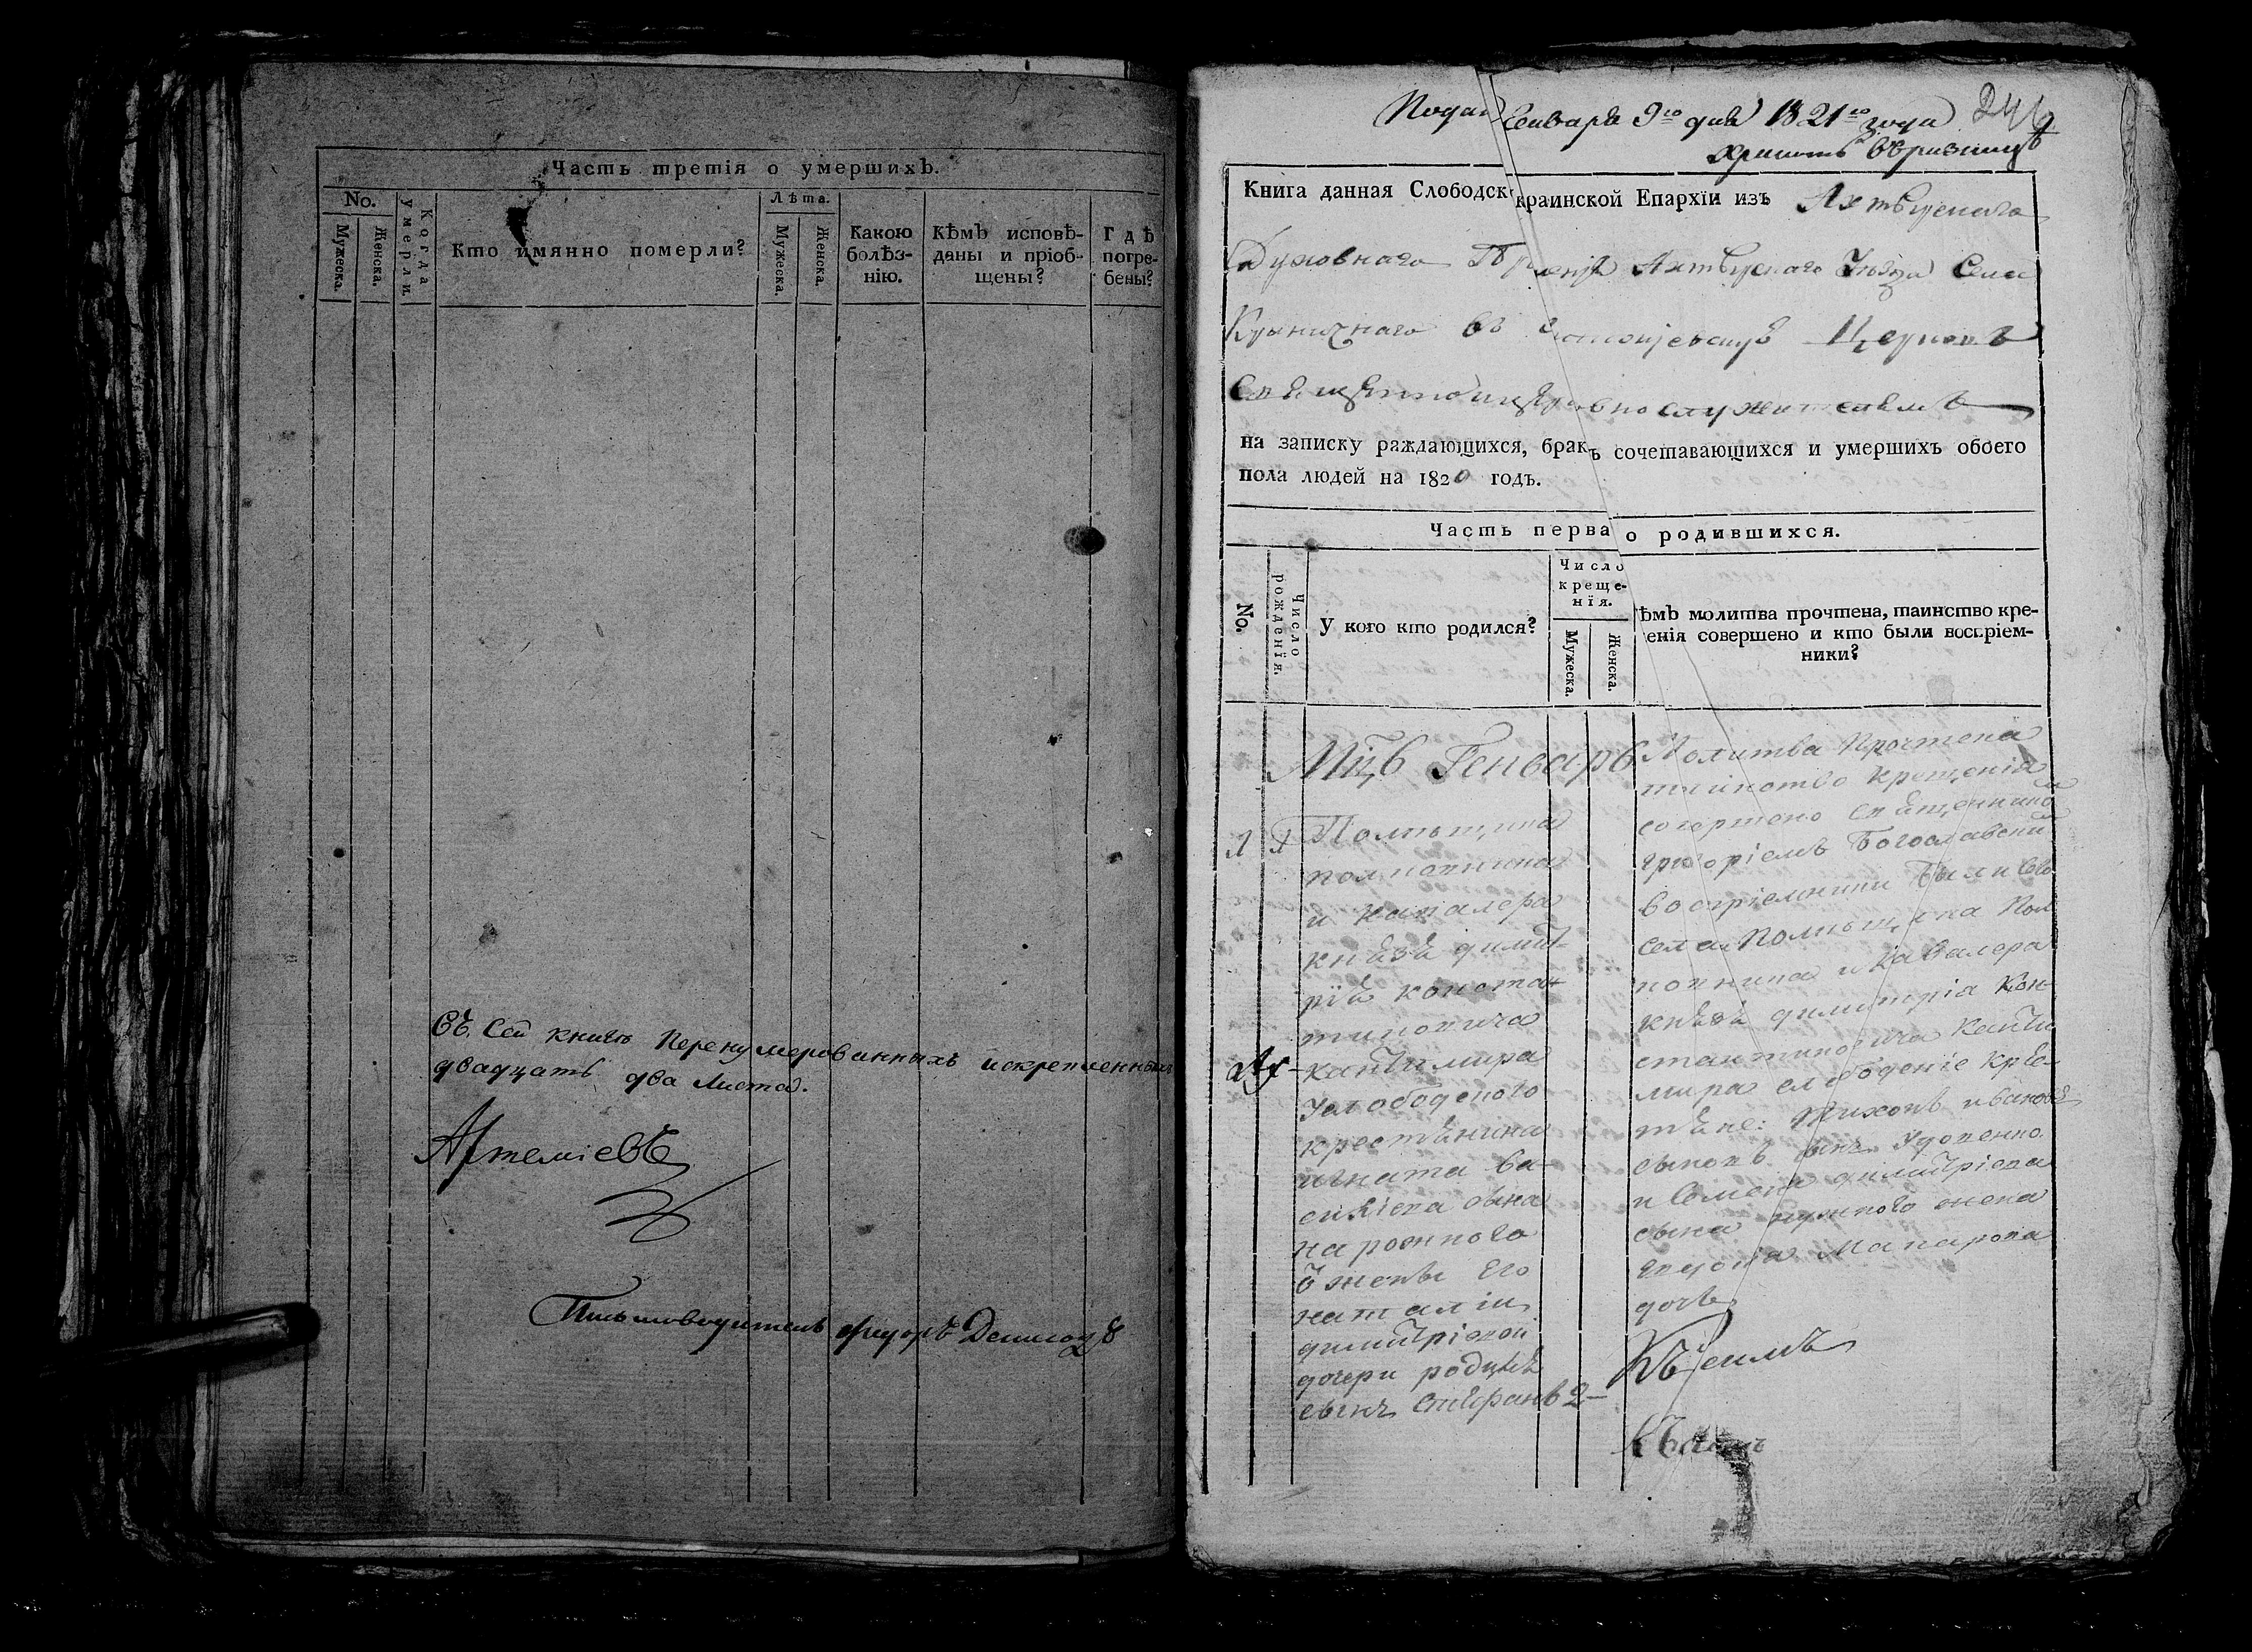 Часть третія о умершихъ.
No.
Мужеска.
Женска.
Когда умерли.
Кто имянно померли?
Лѣта.
Мужеска.
Женска.
Какою болѣз-
нію.
Кѣмъ исповѣ-
даны и пріоб-
щены?
Гдѣ
погре-
бены?
Въ Сей книгѣ Перенумерованныхъ искрепленныхъ
двадцать два Листа.
Артеміевъ
Письмоводитель Федоръ
Генваря 9го дня 1821го года
хранить въ ризницѣ
Книга данная Слободск украинской Епархїи изъ Ахтырскаго
Духовнаго Правленія Ахтырскаго Уѣзда Села
Крыничнаго въ Церковь
Священноцерковнослужителемъ
на записку раждающихся, бракъ сочетавающихся и умершихъ обоего
пола людей на 1820 годъ.
Часть перва о родившихся.
No.
Число рожденїя.
У кого кто родился?
Число
креще-
нїя.
Мужеска.
Женска.
ѣмъ молитва прочтена, таинство кре-
щенія совершено и кто были воспріем-
ники?
Мцъ Генварь
1 1 Помѣщика
полковника
и кавалера
князя димит-
рїя конста-
тиновича
кантимира
слободского
крестянина
игната ва-
силіева сына
нарожного
ѿ жены его
наталіи
димитріевой
дочери родился
сынъ Стефанъ 2
Молитва Прочтена
таинство крещенія
совершено священникомъ
григоріемъ Богославски
воспріемники были сего
села помѣщика Пол
ковника и Кавалера
князя димитрія Кон
стантиновича Канти
мира слободскіе кре-
стяне: Тихонъ ивановъ
сынъ
и Семена димитріева
сына жена
Макарова
дочь